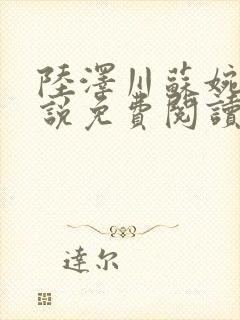 陸澤川蘇婉
說免費閱讀
達尔